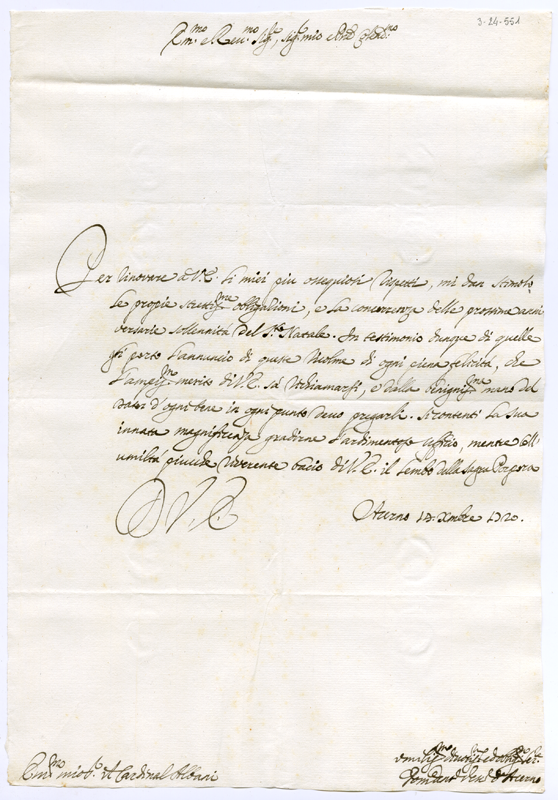 3-24-551
Em.mo e Rev.mo Sig.r, Sig.r mio e Pnd Colend.mo
Per rinovare a V.E. li miei piu ossequiosi rispetti, mi dan stimolo
le propie strettis.me obligationi, e la concorrenza delle prossima anni
versarie sollennità del S.to Natale. In testimonio dunque di quelle
gli porto l'annuncio di queste ricolme di ogni piena felicità, che
l'ampis.mo merito di V.E. sà richiamarsi, e dalla benignis.ma mano del
dator d'ogni bene in ogni punto devo pregarle. Si contenti la sua
innata magnificenza gradirne l'ardimentoso uffizio, mentre coll'
umiltà piu riverente bacio di V.E. il lembo della Sagra Porpora
D V.E.
Aturno 14 Xmbre 1720.
Em.mo mio S.r il Cardinal Albani